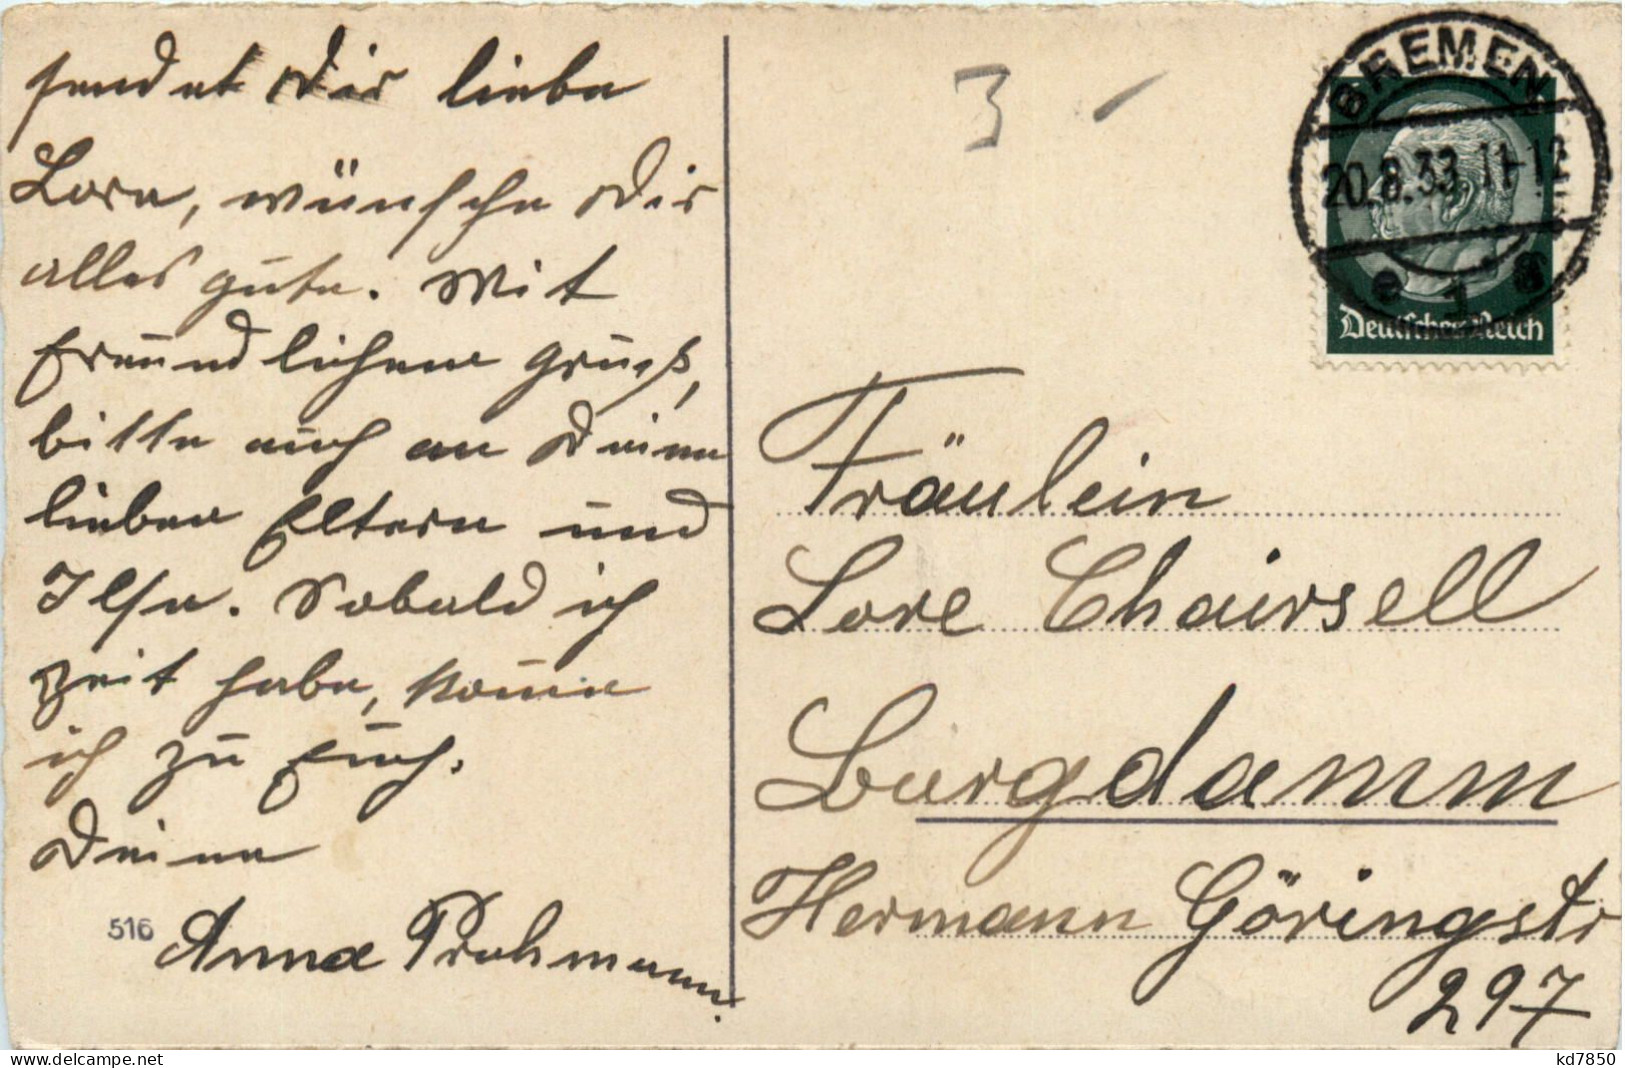 sendet Dir liebe
Lore, wünsche Dir
alles gute. Mit
freundlichem Gruß,
bitte auch an Deine
lieben Eltern und
Ilse. Sobald ich
Zeit habe, komme
ich zu Euch.
Deine
Anna Prohmann.
516
3
BREMEN
20.8.33 11-12
e 1 a
Deutsches Reich
Fräulein
Lore Chairsell
Burgdamm
Hermann Göringstr
297
kd7850
delcampe.net